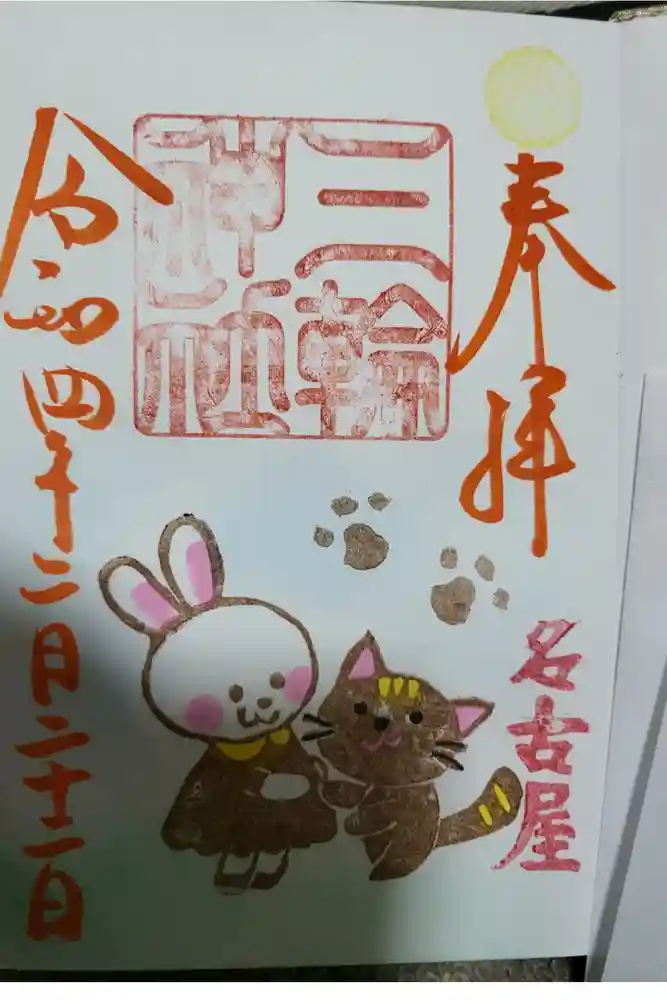 奉拝
名古屋
三輪
神社
令和四年二月二十二日